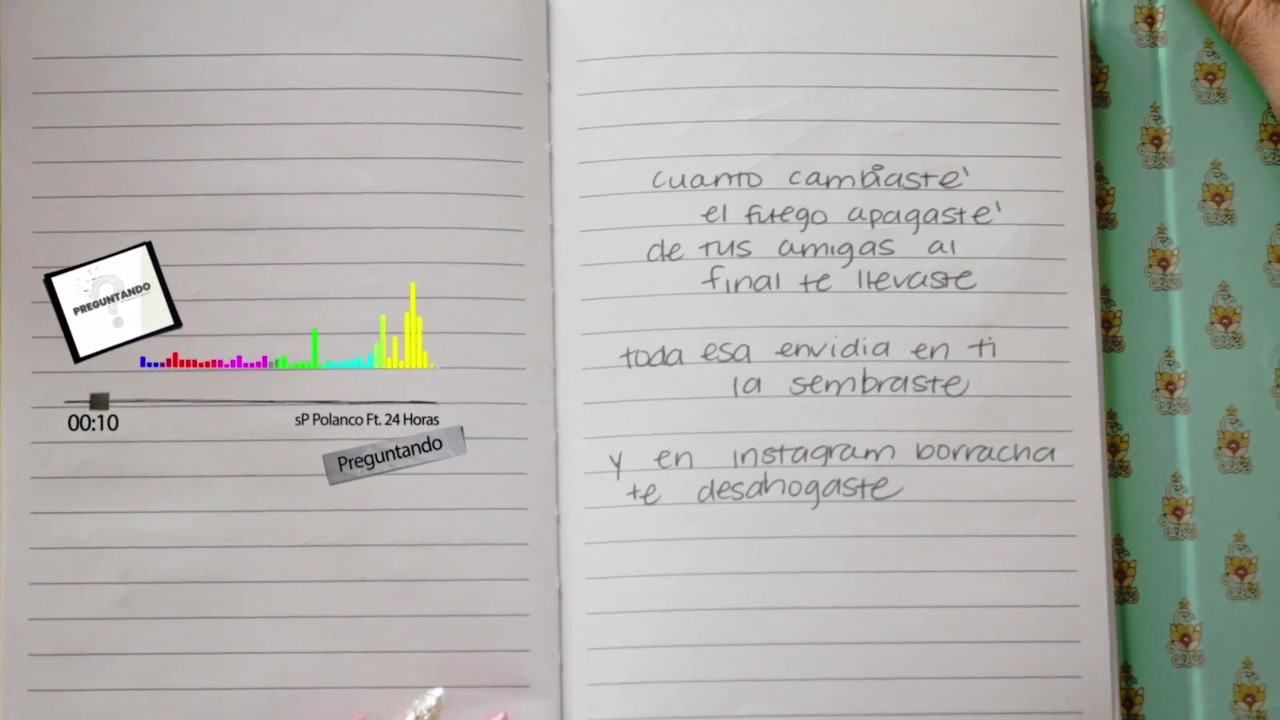 PREGUNTANDO
00:10
sP Polanco Ft. 24 Horas
Preguntando
cuanto cambiaste'
el fuego apagaste'
de tus amigas al
final te llevaste
toda esa envidia en ti
la sembraste
y en instagram borracha
te desahogaste